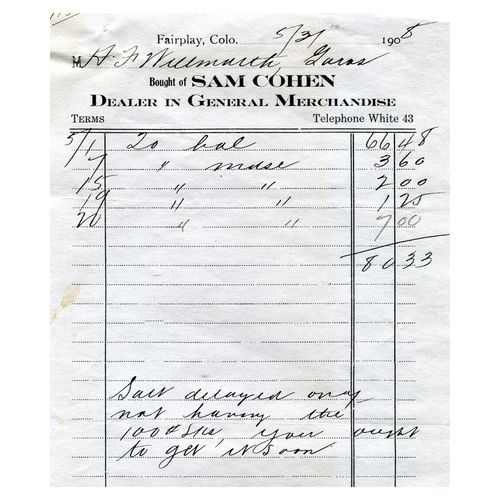 Fairplay, Colo. 5/31 1908
M H. F. Willmarth, Garos
Bought of SAM COHEN
DEALER IN GENERAL MERCHANDISE
TERMS Telephone White 43
5/1 To bal 66 48
7 " mdse 3 60
15 " " 2 00
19 " " 1 25
20 " " 7 00
80 33
Salt delayed
not having the
100# sks, your ought
to get it soon